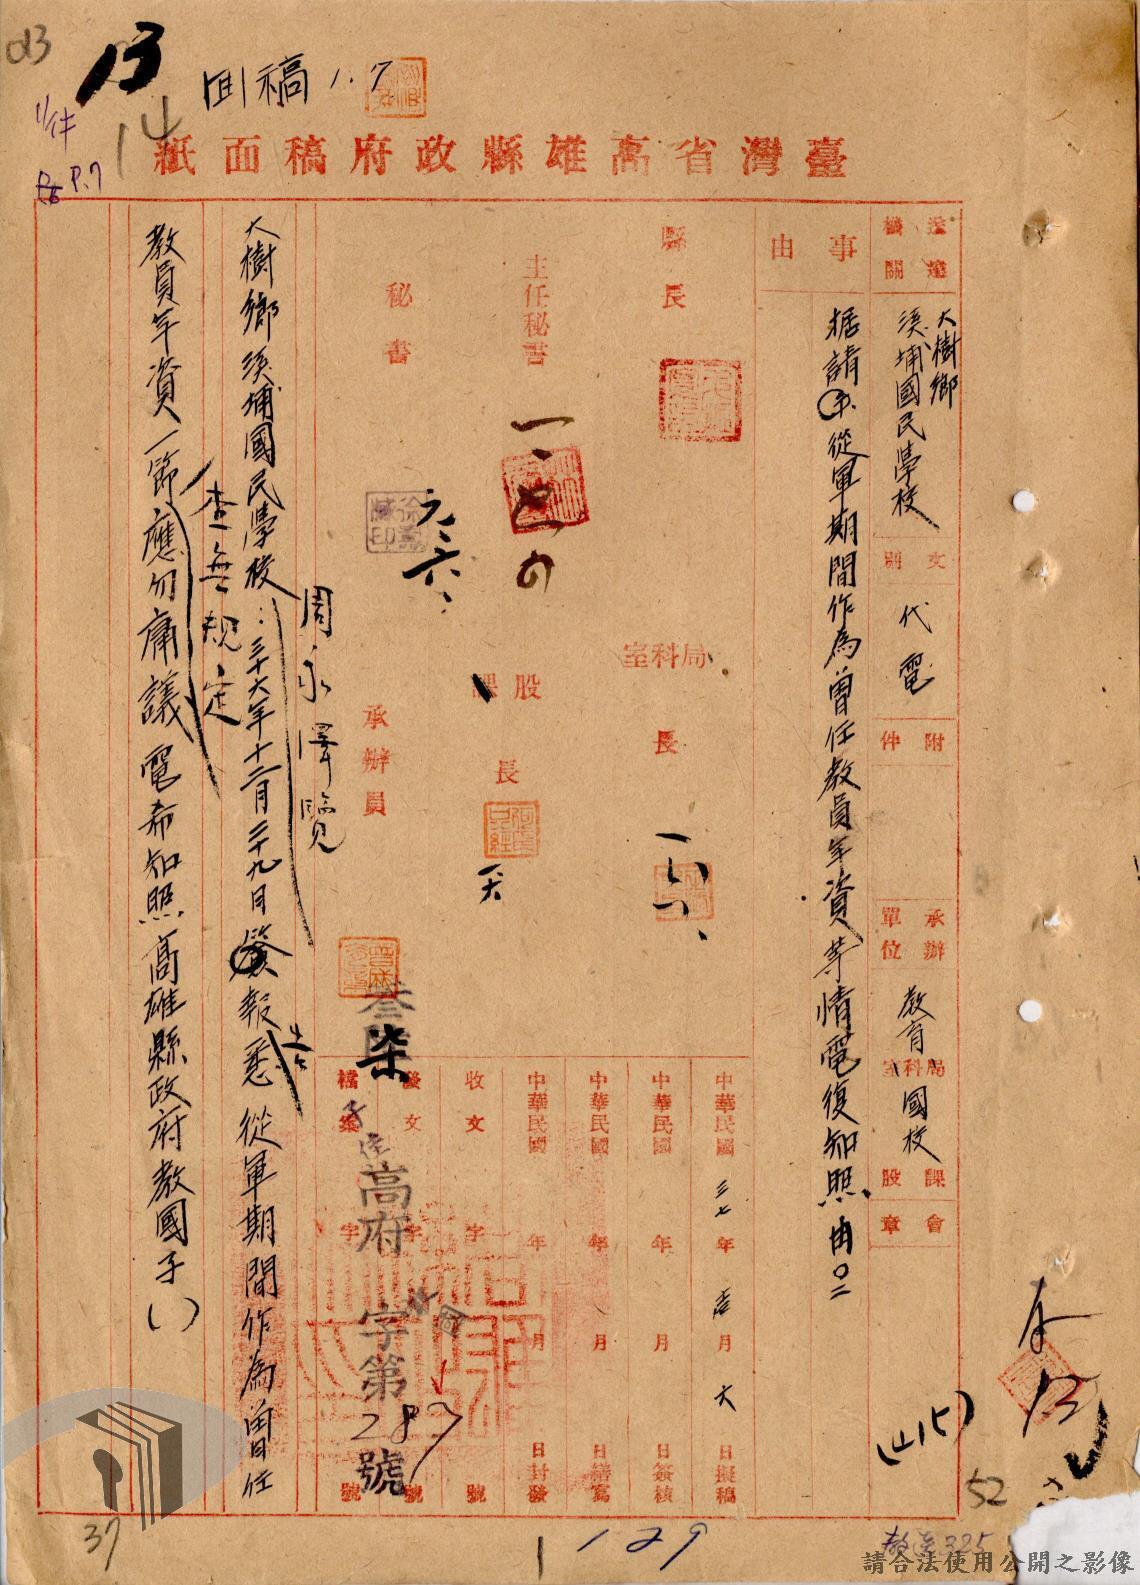 13
回稿 1.7
14
1件
P.7
臺灣省高雄縣政府稿面紙
送達機關
大樹鄉
溪埔國民學校
文別
代電
附件
承辦單位
教育局科室
國校
課股
會章
事由
据請從軍期間作為曾任教員年資等情電復知照由
縣長
局科室長
主任秘書
股課長
秘書
承辦員
中華民國三七年壹月六日擬稿
中華民國 年 月 日簽核
中華民國 年 月 日繕寫
中華民國 年 月 日封發
收文 字 號
發文 字 號
檔案 字 號
叁柒
高府 字第287號
周永澤覽
大樹鄉溪埔國民學校：三十六年十二月二十九日簽報悉從軍期間作為曾任
查無規定
教員年資一節應勿庸議電希知照高雄縣政府教國子( )
52
37
129
325
請合法使用公開之影像